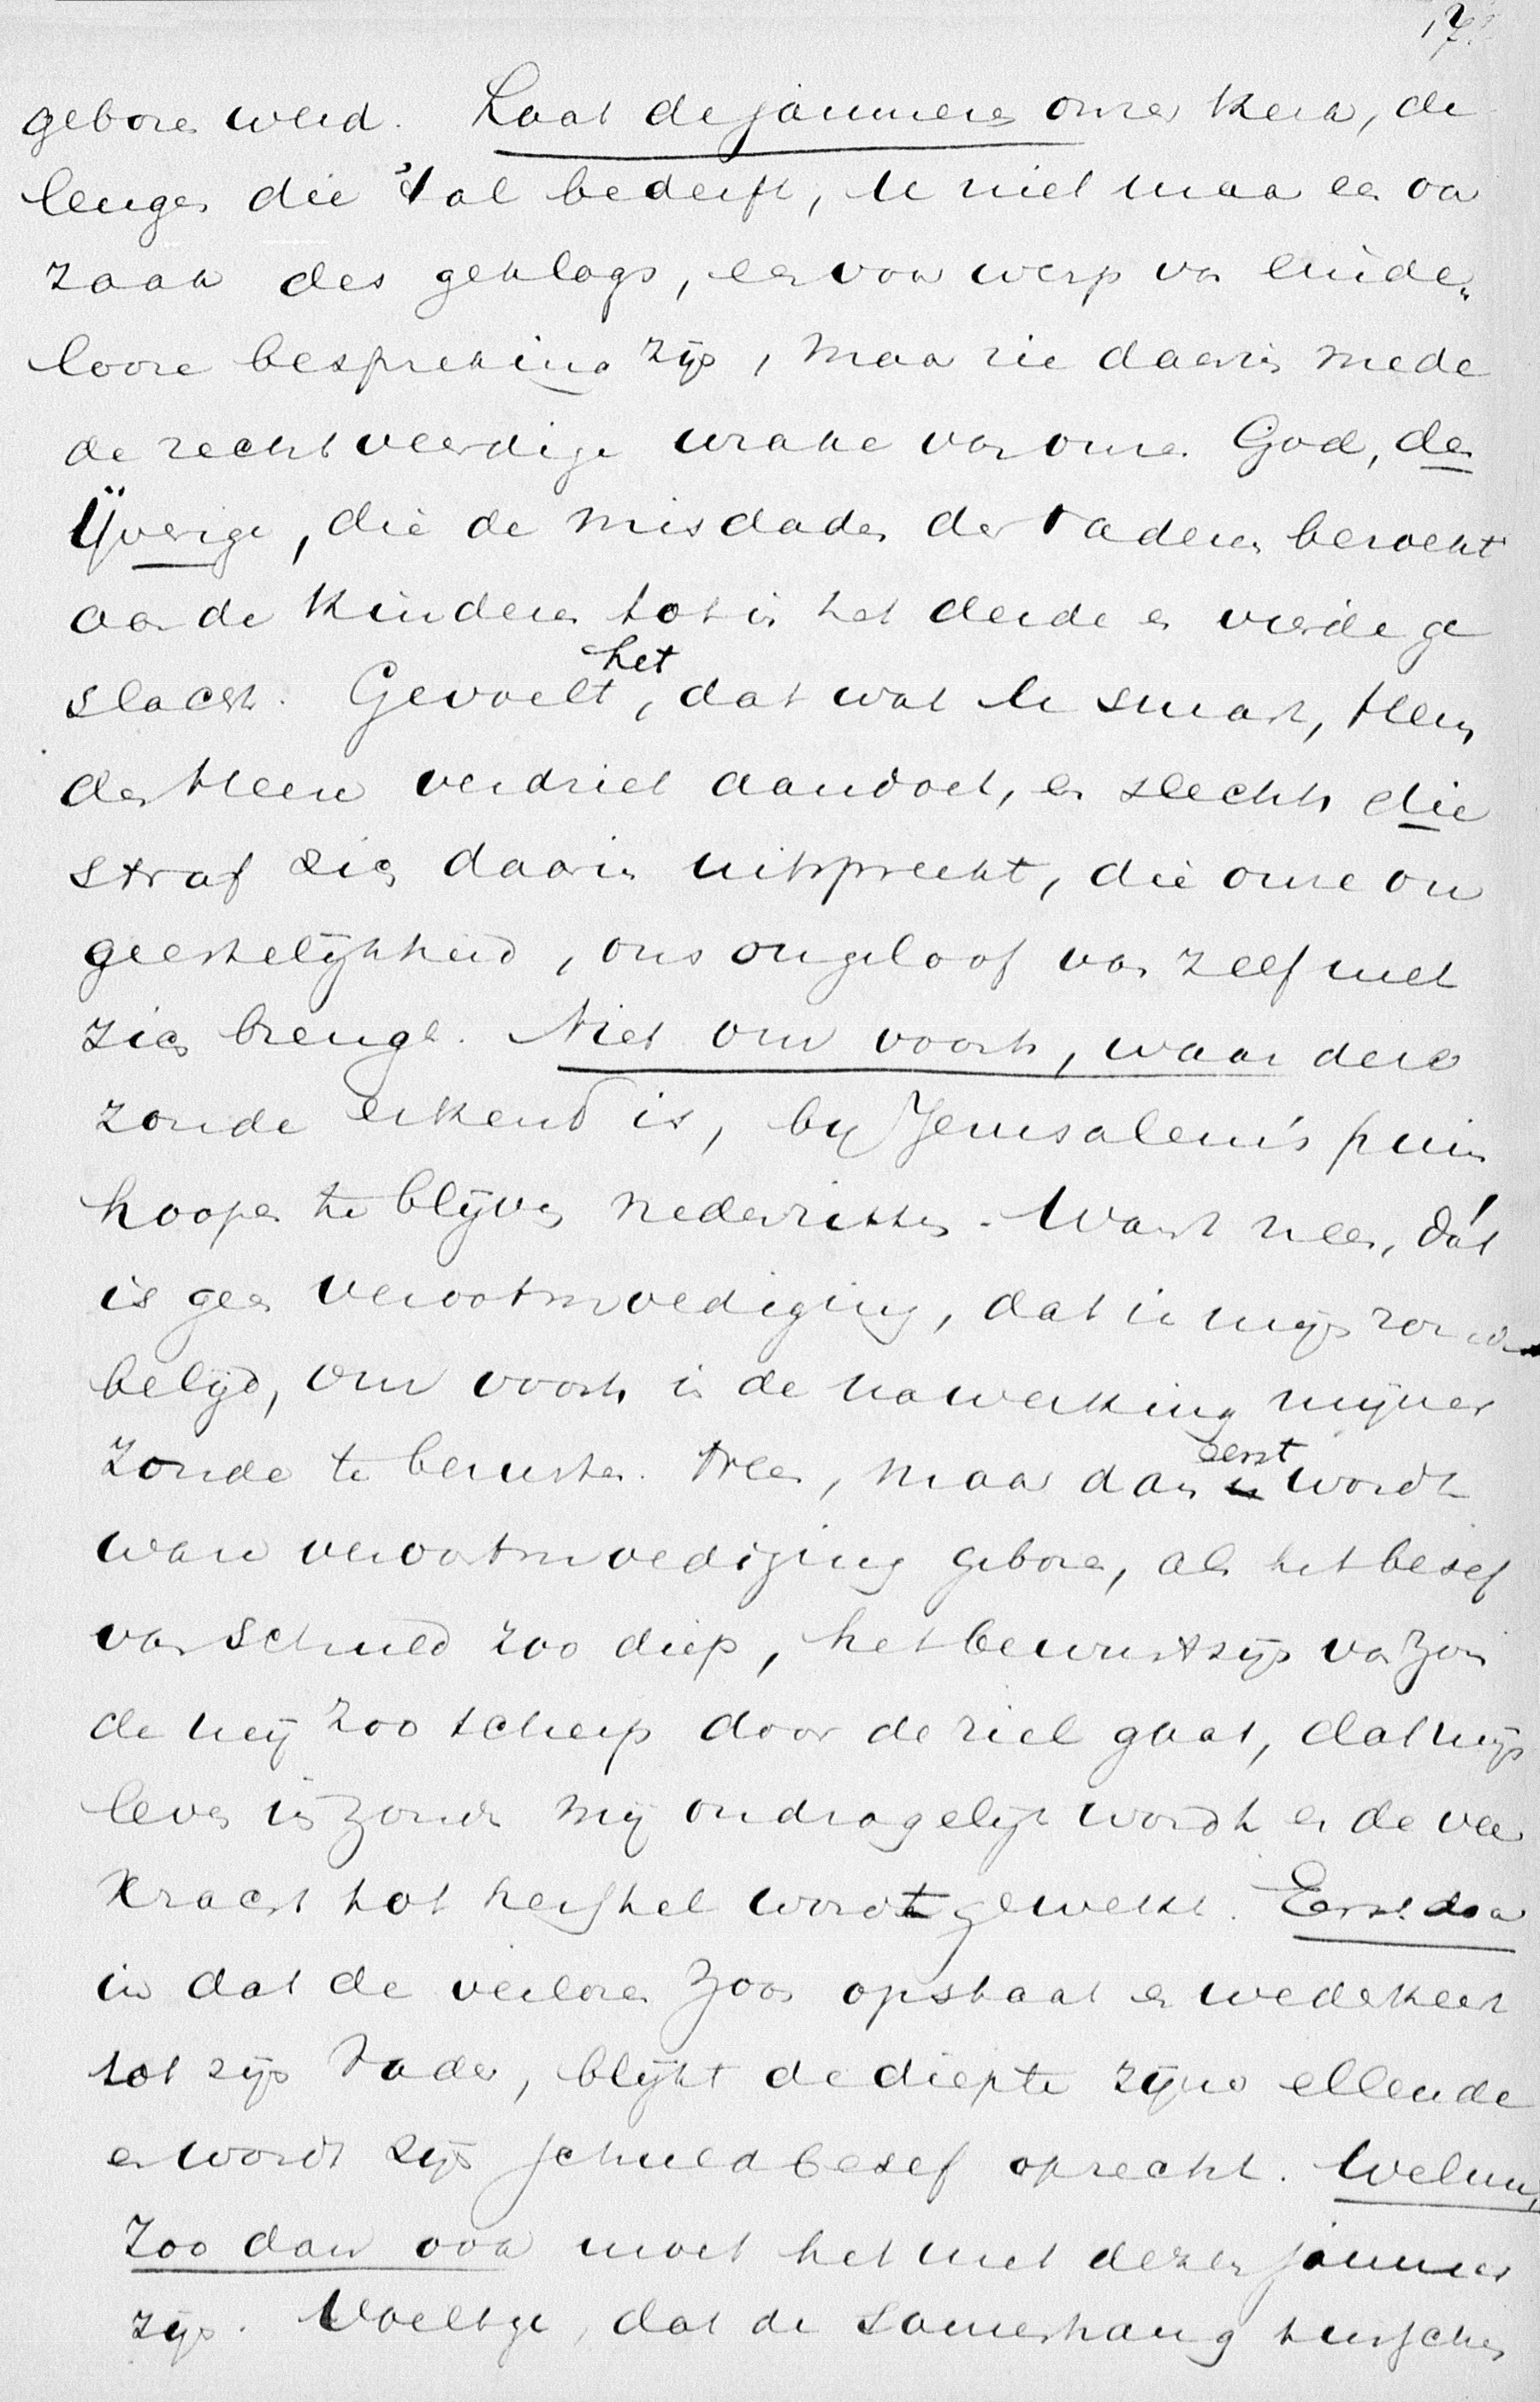 17.
geboren werd. Laat de jammeren onzer Kerk, de
leugen die 't al bederft, U niet maar een oor
zaak des geklags, een voorwerp van einde„
looze bespreking zijn, maar zie daarin mede
de rechtveerdige wrake van onzen God, den
IJverige, die de misdaden der vaderen bezoekt
aan de kinderen tot in het derde en vierde ge
slacht. Gevoelt het, dat wat U smart, Hem
den Heere verdriet aandoet, en slechts die
straf zich daarin uitspreekt, die onze on
geestelijkheid, ons ongeloof van zelf met
zich brengt. Niet om voorts, waar deze
zonde erkend is, bij Jeruzalem's puin
hoopen te blijven nederzitten. Want neen, dát
is geen verootmoediging, dat ik mijn zonde
belijd, om voorts in de nawerking mijner
zonde te berusten. Neen, maar dan eerst wordt
ware verootmoediging geboren, als het besef
van schuld zoo diep, het bewustzijn van zon
de mij zoo scherp door de ziel gaat, dat mijn
leven in zonde mij ondragelijk wordt en de veer
kracht tot herstel wordt gewekt. Eerst daar
in dat de verloren zoon opstaat en wederkeert
tot zijn Vader, blijkt de diepte zijner ellende
en wordt zijn schuldbesef oprecht. Welnu,
zoo dan ook moet het met dezen jammer
zijn. Voelt ge, dat de samenhang tusschen